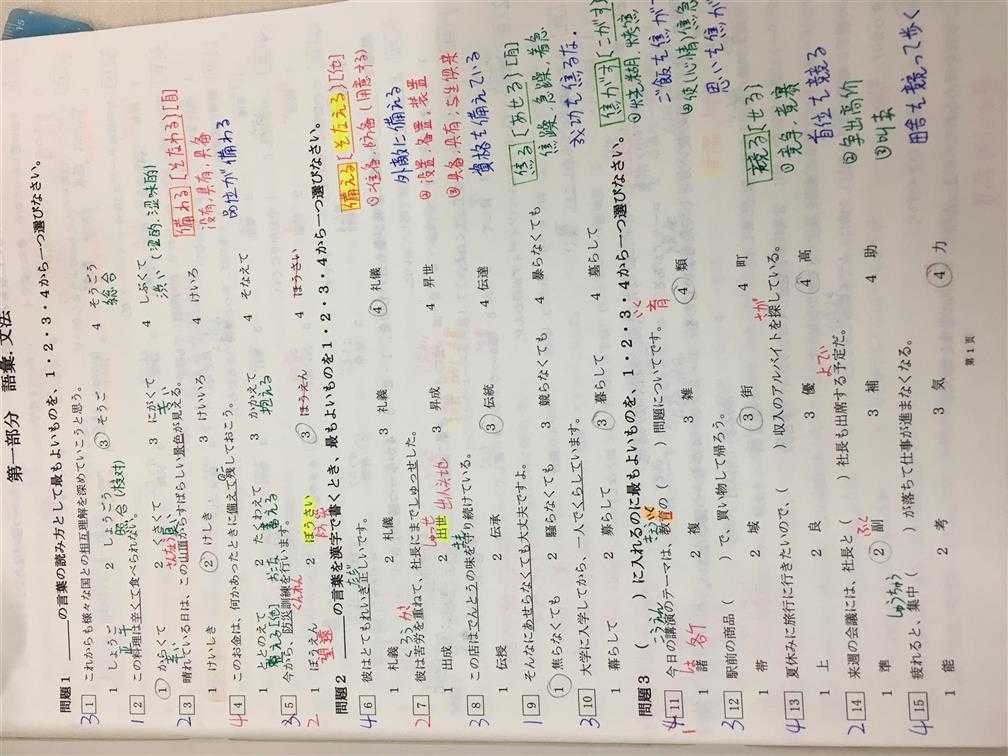 第一部分　語彙.文法
問題1　＿＿＿の言葉の読み方として最もよいものを、1・2・3・4から一つ選びなさい。
3 1 これからも様々な国との相互理解を深めていこうと思う。
1 しょうご 2 しょうごう 3 そうご 4 そうごう
正午 照合(核対) 総合
1 2 この料理は辛くて食べられない。
1 からくて 2 くさくて 3 にがくて 4 しぶくて
苦い 渋い (涩的.涩味的)
2 3 晴れている日は、この山頂からすばらしい景色が見える。
1 けいしき 2 けしき 3 けいいろ 4 けいろ
4 4 このお金は、何かあったときに備えて残しておこう。
1 ととのえて 2 たくわえて 3 かかえて 4 そなえて
整える[他] 蓄える 抱える
3 5 今から、防災訓練を行います。
くんれん おこな
2 1 ぼうえん 2 ぼうさい 3 ほうえん 4 ほうさい
望遠 防災
問題2　＿＿＿の言葉を漢字で書くとき、最もよいものを1・2・3・4から一つ選びなさい。
4 6 彼はとてもれいぎ正しいです。
1 礼義 2 札儀 3 札義 4 礼儀
2 7 彼は苦労を重ねて、社長にまでしゅっせした。
1 出成 2 出世 3 昇成 4 昇世
しゅっせ 出人头地
3 8 この店はでんとうの味を守り続けている。
1 伝授 2 伝承 3 伝統 4 伝達
1 9 そんなにあせらなくても大丈夫ですよ。
1 焦らなくても 2 騒らなくても 3 競らなくても 4 暴らなくても
3 10 大学に入学してから、一人でくらしています。
1 暮らして 2 募らして 3 暮らして 4 墓らして
問題3　(　)に入れるのに最もよいものを、1・2・3・4から一つ選びなさい。
4 11 今日の講演のテーマは、教育の(　)問題についてです。
こうえん きょういく 育
1 諸 2 複 3 雑 4 類
各个
3 12 駅前の商品(　)で、買い物して帰ろう。
1 帯 2 域 3 街 4 町
4 13 夏休みに旅行に行きたいので、(　)収入のアルバイトを探している。
さが
1 上 2 良 3 優 4 高
2 14 来週の会議には、社長と(　)社長も出席する予定だ。
よてい
1 準 2 副 3 補 4 助
ふく
4 15 疲れると、集中(　)が落ちて仕事が進まなくなる。
しゅうちゅう
1 能 2 考 3 気 4 力
第1頁
備わる[そなわる][自]
设有,具有,具备
品性が備わる
備える[そなえる][他]
①准备,防备(用意する)
外敵に備える
②设置,备置,装置
③具备,具有;与生俱来
資格を備えている
焦る[あせる][自]
焦躁,急躁,着急
成功を焦るな.
焦がす[こがす]
①烧糊,烤焦
ご飯を焦がす
②使(心情)焦急
思いを焦が
競る[せる]
①竞争,竞赛
首位を競る
②争出高价
③叫卖
田舎を競って歩く